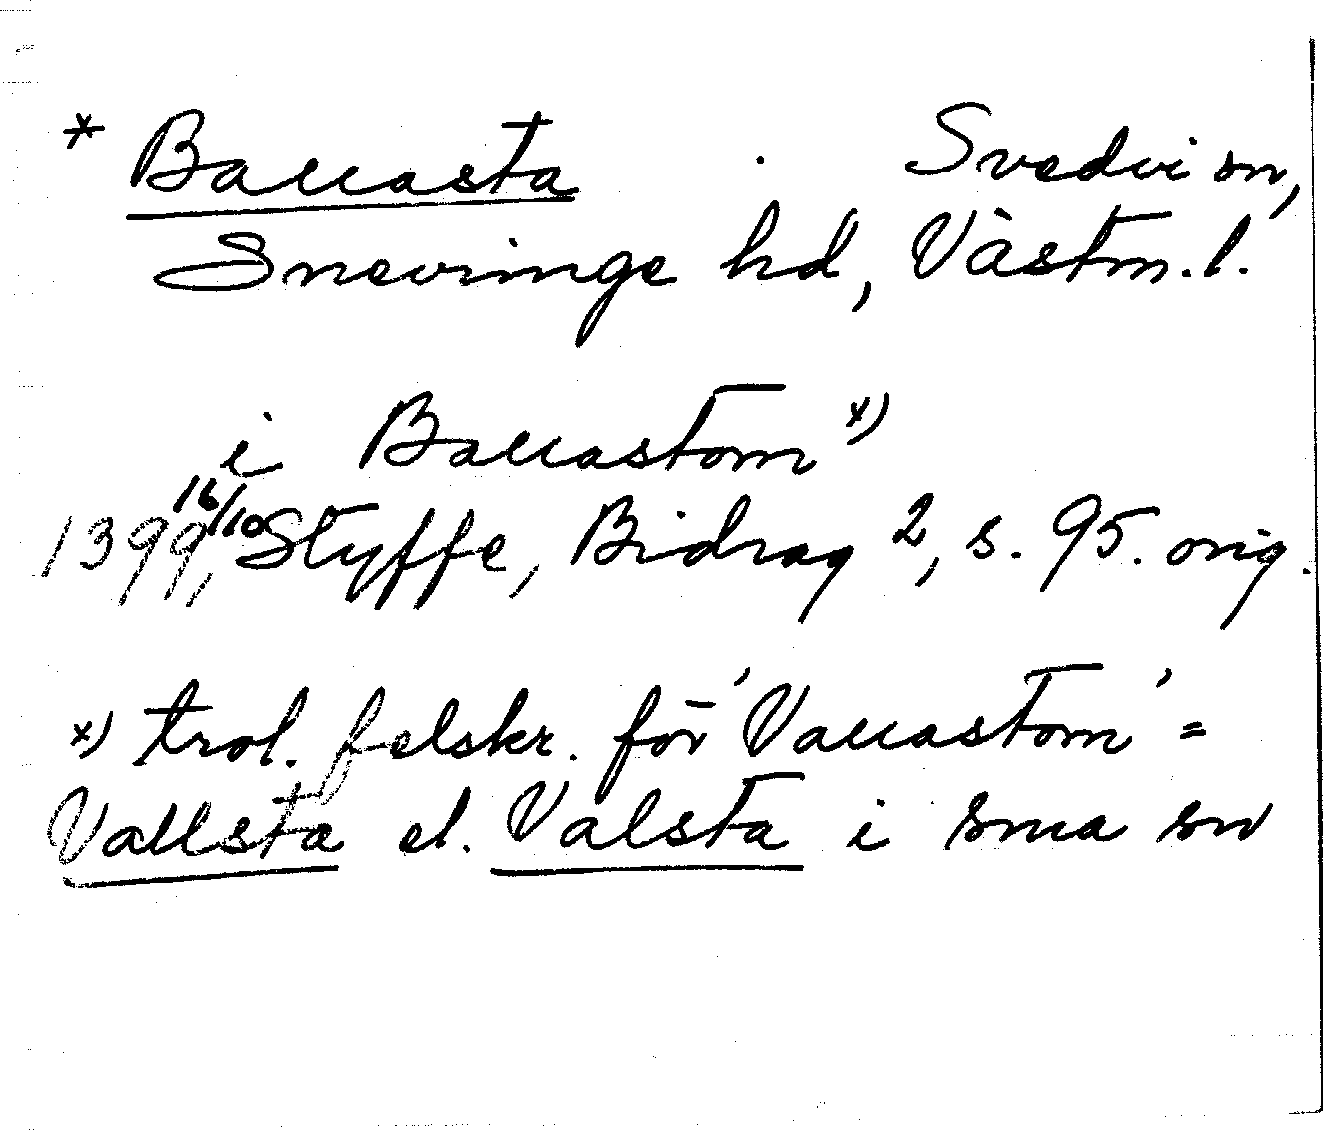 * Ballasta . Svedvi sn,
Snevringe hd, Västm. l.
i Ballastom x)
1399 16/10, Styffe, Bidrag 2, s. 95. orig.
x) trol. felskr. för 'Vallastom' =
Vallsta el. Valsta i sma sn